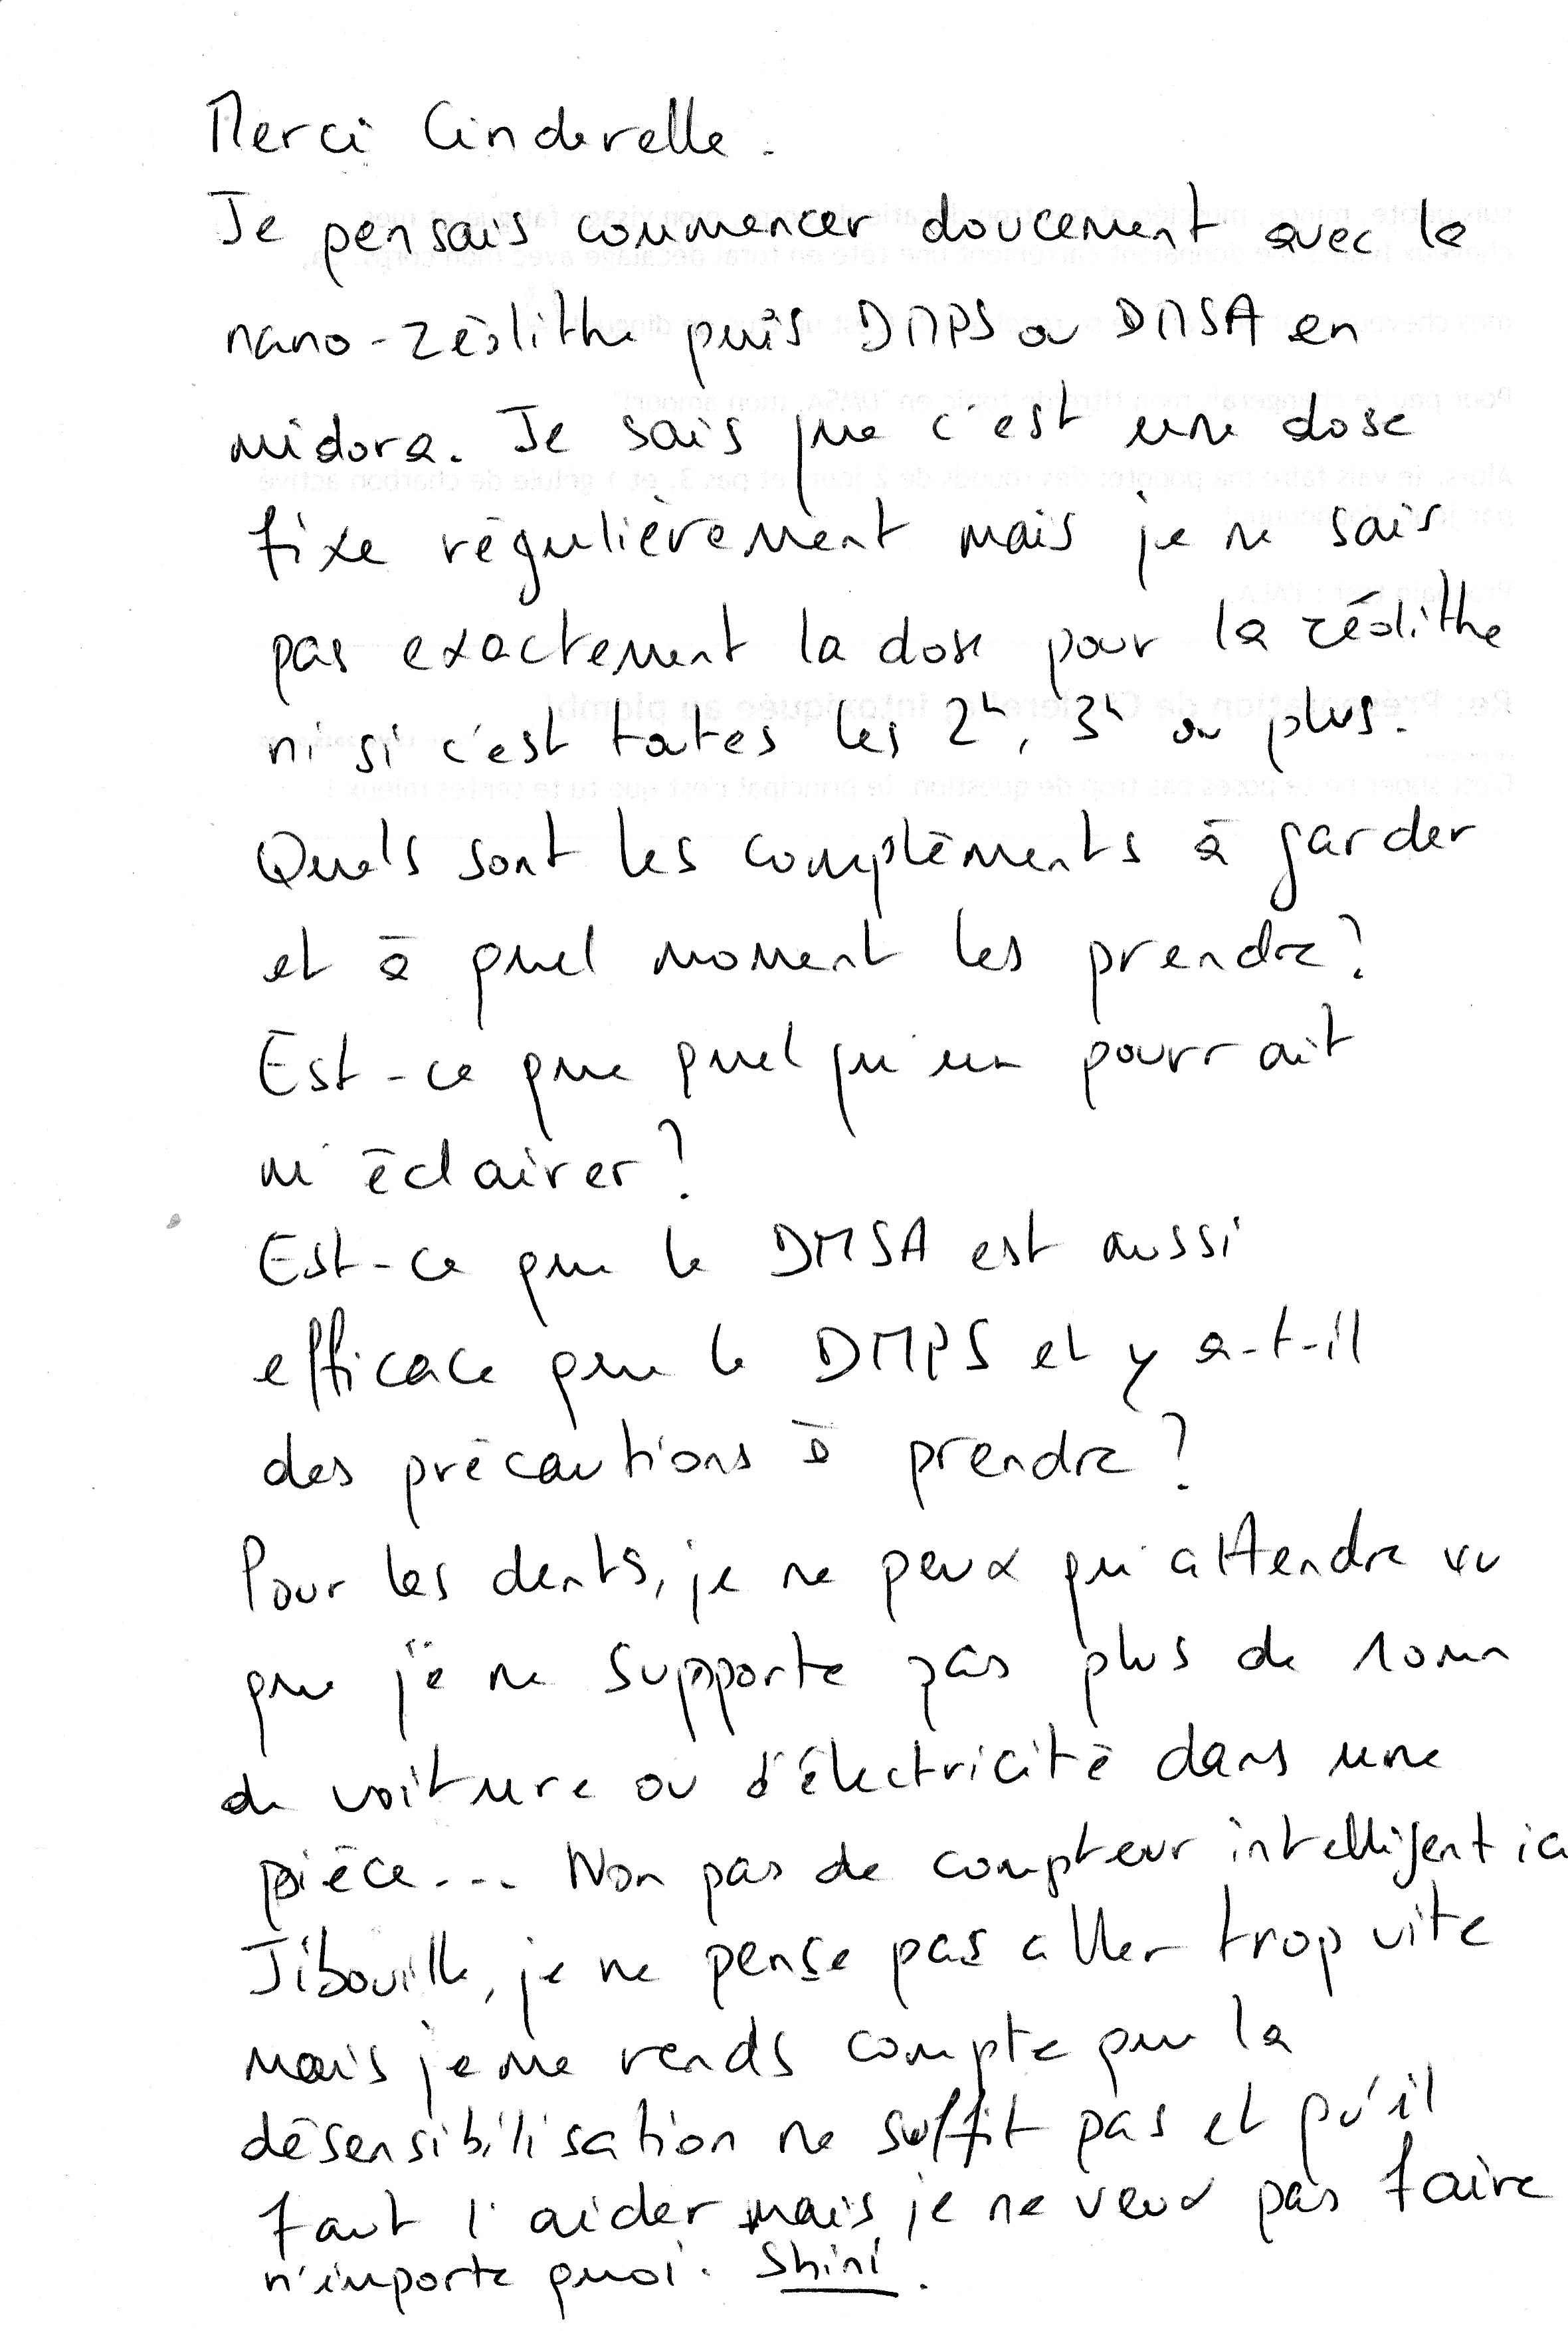 Merci Cinderelle.
Je pensais commencer doucement avec la
nano-zéolithe puis DMPS ou DMSA en
midora. Je sais que c'est une dose
fixe régulièrement mais je ne sais
pas exactement la dose pour la zéolithe
ni si c'est toutes les 2h, 3h ou plus.
Quels sont les compléments à garder
et à quel moment les prendre?
Est-ce que quelqu'un pourrait
m'éclairer?
Est-ce que le DMSA est aussi
efficace que le DMPS et y a-t-il
des précautions à prendre?
Pour les dents, je ne peux qu'attendre vu
que je ne supporte pas plus de 10mn
de voiture ou d'électricité dans une
pièce... Non pas de compteur intelligent ici
Jibouille, je ne pense pas aller trop vite
mais je me rends compte que la
désensibilisation ne suffit pas et qu'il
faut l'aider mais je ne veux pas faire
n'importe quoi. Shini.